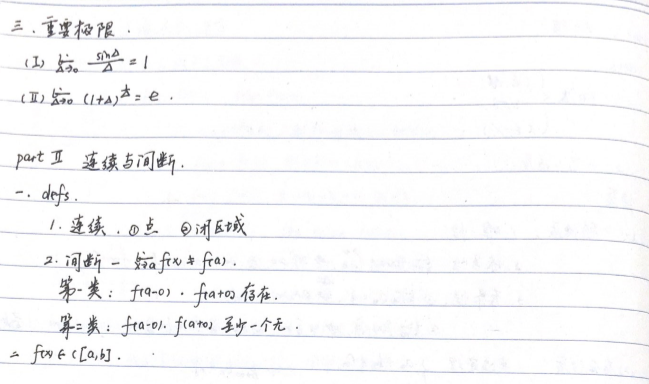 三．重要极限．
(Ⅰ) lim Δ→0 sinΔ/Δ = 1
(Ⅱ) lim Δ→0 (1+Δ)^(1/Δ) = e．
part Ⅱ 连续与间断．
一．defs．
1．连续．①点 ②闭区域
2．间断 — lim x→a f(x) ≠ f(a)．
第一类：f(a-0)．f(a+0) 存在．
第二类：f(a-0)．f(a+0) 至少一个无．
二 f(x)∈C[a,b]．